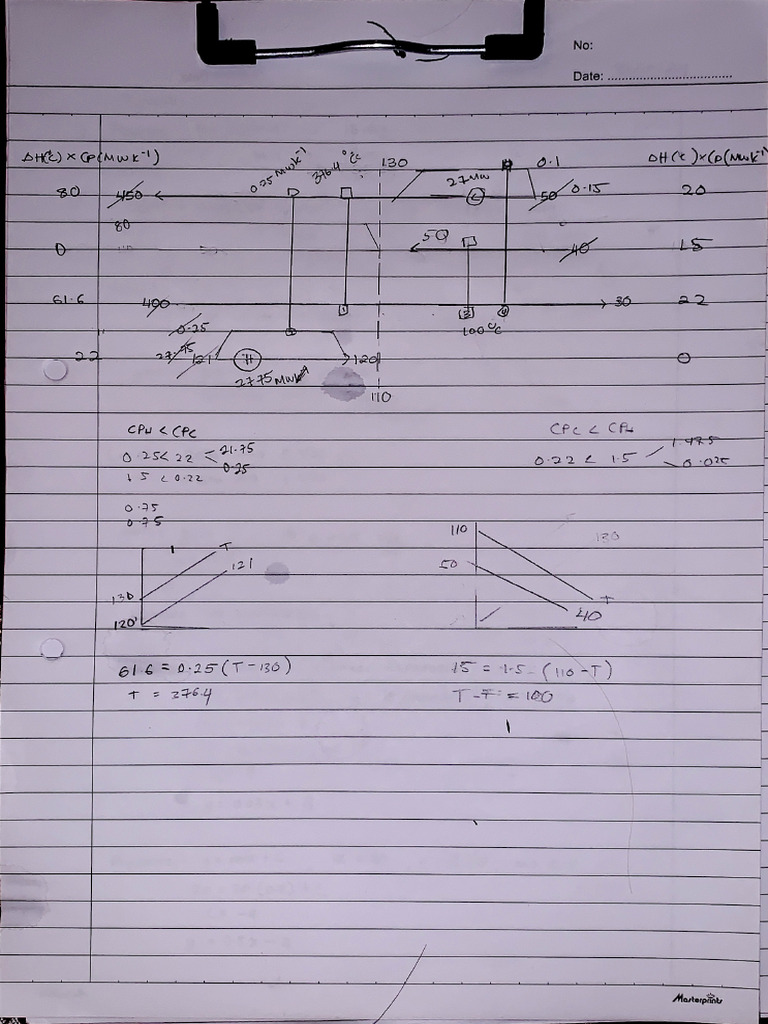 No:
Date: ..................................
ΔH(°C) × CP(MWK⁻¹)
0.25 MWK⁻¹
376.4 °C
130
0.1
ΔH(°C) × CP(MWK⁻¹)
80
450
27 MW
C
50
0.15
20
80
0
50
40
15
61.6
400
1
3
4
30
22
0.25
100°C
22
27.75
121
H
120
0
27.75 MW
110
CPH < CPC
CPC < CPH
0.25 < 22
21.75
0.25
0.22 < 1.5
1.475
0.025
1.5 < 0.22
0.75
0.75
T
121
130
120
110
50
130
T
40
61.6 = 0.25 (T - 130)
15 = 1.5 (110 - T)
T = 376.4
T = 100
Masterprints